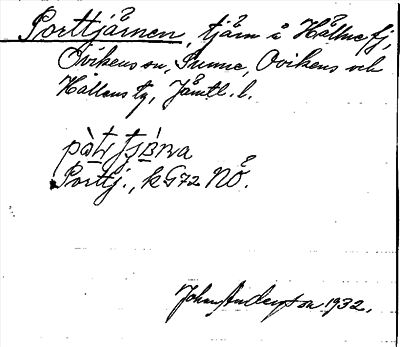 Porttjärnen, tjärn i Hållne fj,
Ovikens sn, Sunne, Ovikens och
Hallens tg, Jämtl. l.
Porttj., k G72 NÖ.
Johan Anderson 1932.